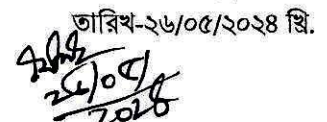 তারিখ-২৬/০৫/২০২৪ খ্রি.
২৬/০৫/
২০২৪